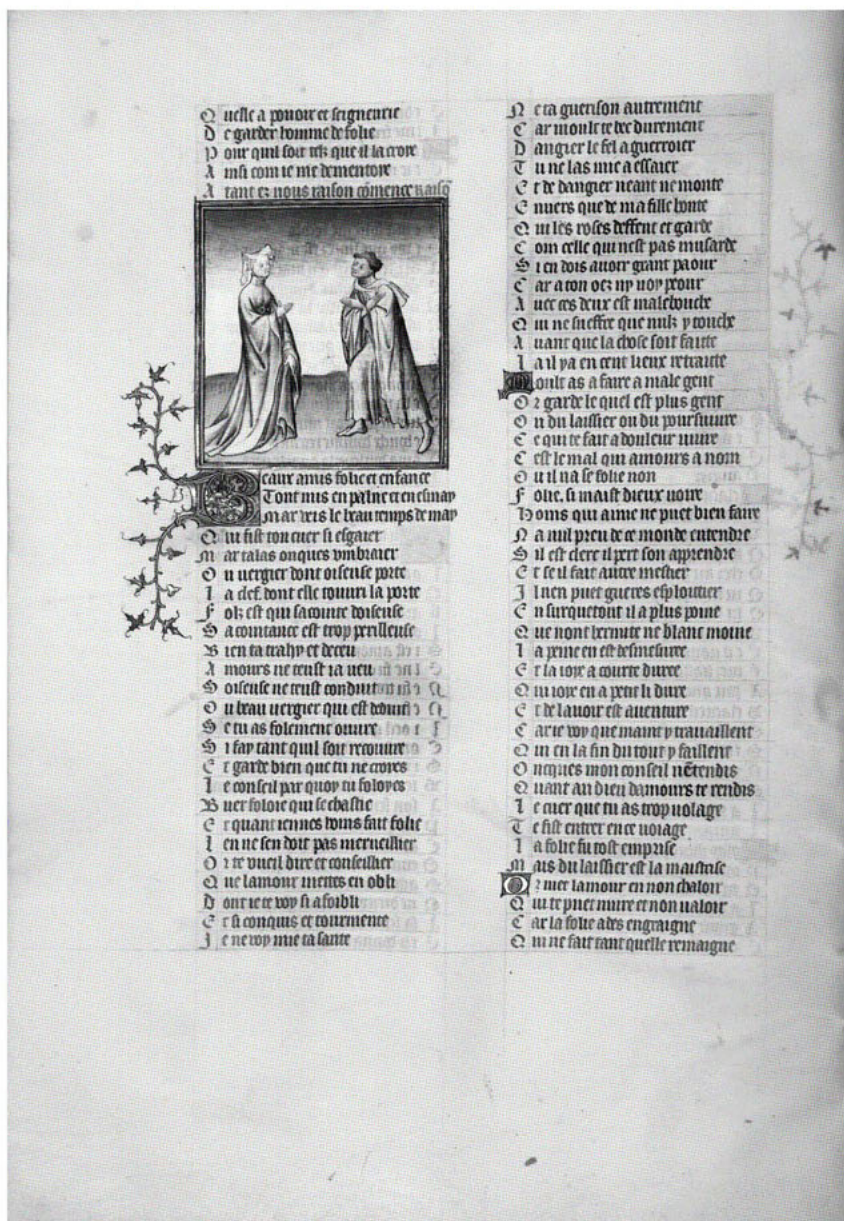 Q uelle a pouoir et seigneurie
D e garder homme de folie
P our quil soit telz que il la croie
A insi com ie me dementoie
A tant ez nous raison cōmence
B eaux amis folie et enfance
T ont mis en paine et en esmay
M ar veis le beau temps de may
Q ui fist ton cuer si esgaier
M ar talas onques vmbraier
O u vergier dont oiseuse porte
L a clef dont elle touuri la porte
F olz est qui sacointe doiseuse
S acointance est trop perilleuse
B ien ta trahy et deceu
A mours ne teust ia veu
S oiseuse ne teust conduit
O u beau uergier qui est deduit
S e tu as folement ouure
S i fay tant quil soit recouure
E t garde bien que tu ne croies
L e conseil par quoy tu foloyes
B uer foloie qui se chastie
E t quant iennes homs fait folie
L en ne sen doit pas merueillier
O r te vueil dire et conseillier
Q ue lamour mettes en obli
D ont ie te voy si afoibli
E t si conquis et tourmente
J e ne voy mie ta sante
N e ta guerison autrement
C ar moult te bee durement
D angier le fel a guerroier
T u ne las mie a essaier
E t de dangier neant ne monte
E nuers que de ma fille honte
Q ui les roses deffent et garde
C om celle qui nest pas musarde
S i en dois auoir grant paour
C ar a ton oez ny voy peour
A uec ces deux est malebouche
Q ui ne sueffre que nulz y touche
A uant que la chose soit faite
L a il ya en cent lieux retraicte
M oult as a faire a male gent
O r garde le quel est plus gent
O u du laissier ou du poursuiure
C e qui te fait a douleur uiure
C est le mal qui amours a nom
O u il na se folie non
F olie si maist dieux uoire
H oms qui aime ne puet bien faire
N a nul preu de ce monde entendre
S il est clerc il pert son apprendre
E t se il fait autre mestier
I l nen puet gueres esploittier
E n surquetout il a plus poine
Q ue nont hermite ne blanc moine
L a peine en est desmesuree
E t la ioie a courte duree
Q ui ioie en a petit li dure
E t de lauoir est auenture
C ar ie voy que maint y trauaillent
Q ui en la fin du tout y faillent
O ncques mon conseil nētendis
Q uant au dieu damours te rendis
L e cuer que tu as trop uolage
T e fist entrer en ce uoiage
L a folie fu tost emprise
M ais du laissier est la maistrise
O r met lamour en non chaloir
Q ui te puet nuire et non ualoir
C ar la folie ades engraigne
Q ui ne fait tant quelle remaigne